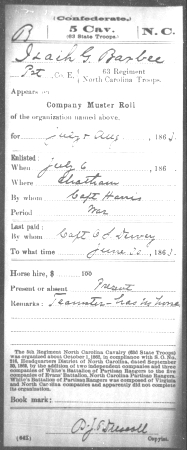 (Confederate.)
B 5 Cav. N.C.
(63 State Troops.)
Isaih G. Barbee
Pvt., Co. E, 63 Regiment
North Carolina Troops.
Appears on
Company Muster Roll
of the organization named above.
for July & Aug, 1863.
Enlisted:
When July 6, 186
Where Chatham
By whom Capt Harris
Period War
Last paid:
By whom Capt
To what time June 30, 1863.
Horse hire, $ 100
Present or absent Present
Remarks: Teamster
The 5th Regiment North Carolina Cavalry (63d State Troops)
was organized about October 1, 1862, in compliance with S. O. No.
Headquarters District of North Carolina, dated September
30, 1862, by the addition of two independent companies and three
companies of White's Battalion of Partisan Rangers to the five
companies of Evans' Battalion, North Carolina Partisan Rangers.
White's Battalion of Partisan Rangers was composed of Virginia
and North Carolina companies and apparently did not complete its
organization.
Book mark:
(642) Copyist.